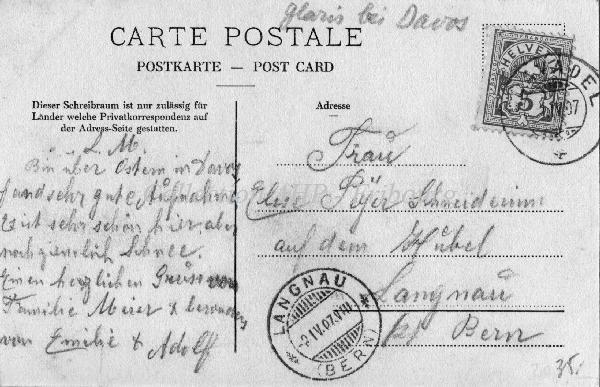 Glaris bei Davos
CARTE POSTALE
POSTKARTE — POST CARD
Dieser Schreibraum ist nur zulässig für
Länder welche Privatkorrespondenz auf
der Adress-Seite gestatten.
Adresse
L. M.
Bin über Ostern in Davos
fand sehr gute Aufnahme
Es ist sehr schön hier aber
noch ziemlich Schnee.
Einen herzlichen Gruss von
Familie Meier & besonders
von Emilie & Adolf
Frau
Elise Schneiderin
auf dem Hübel
Langnau
Kt Bern
HELVETIA
5
07
LANGNAU
2.IV.07.VIII
(BERN)
35.-